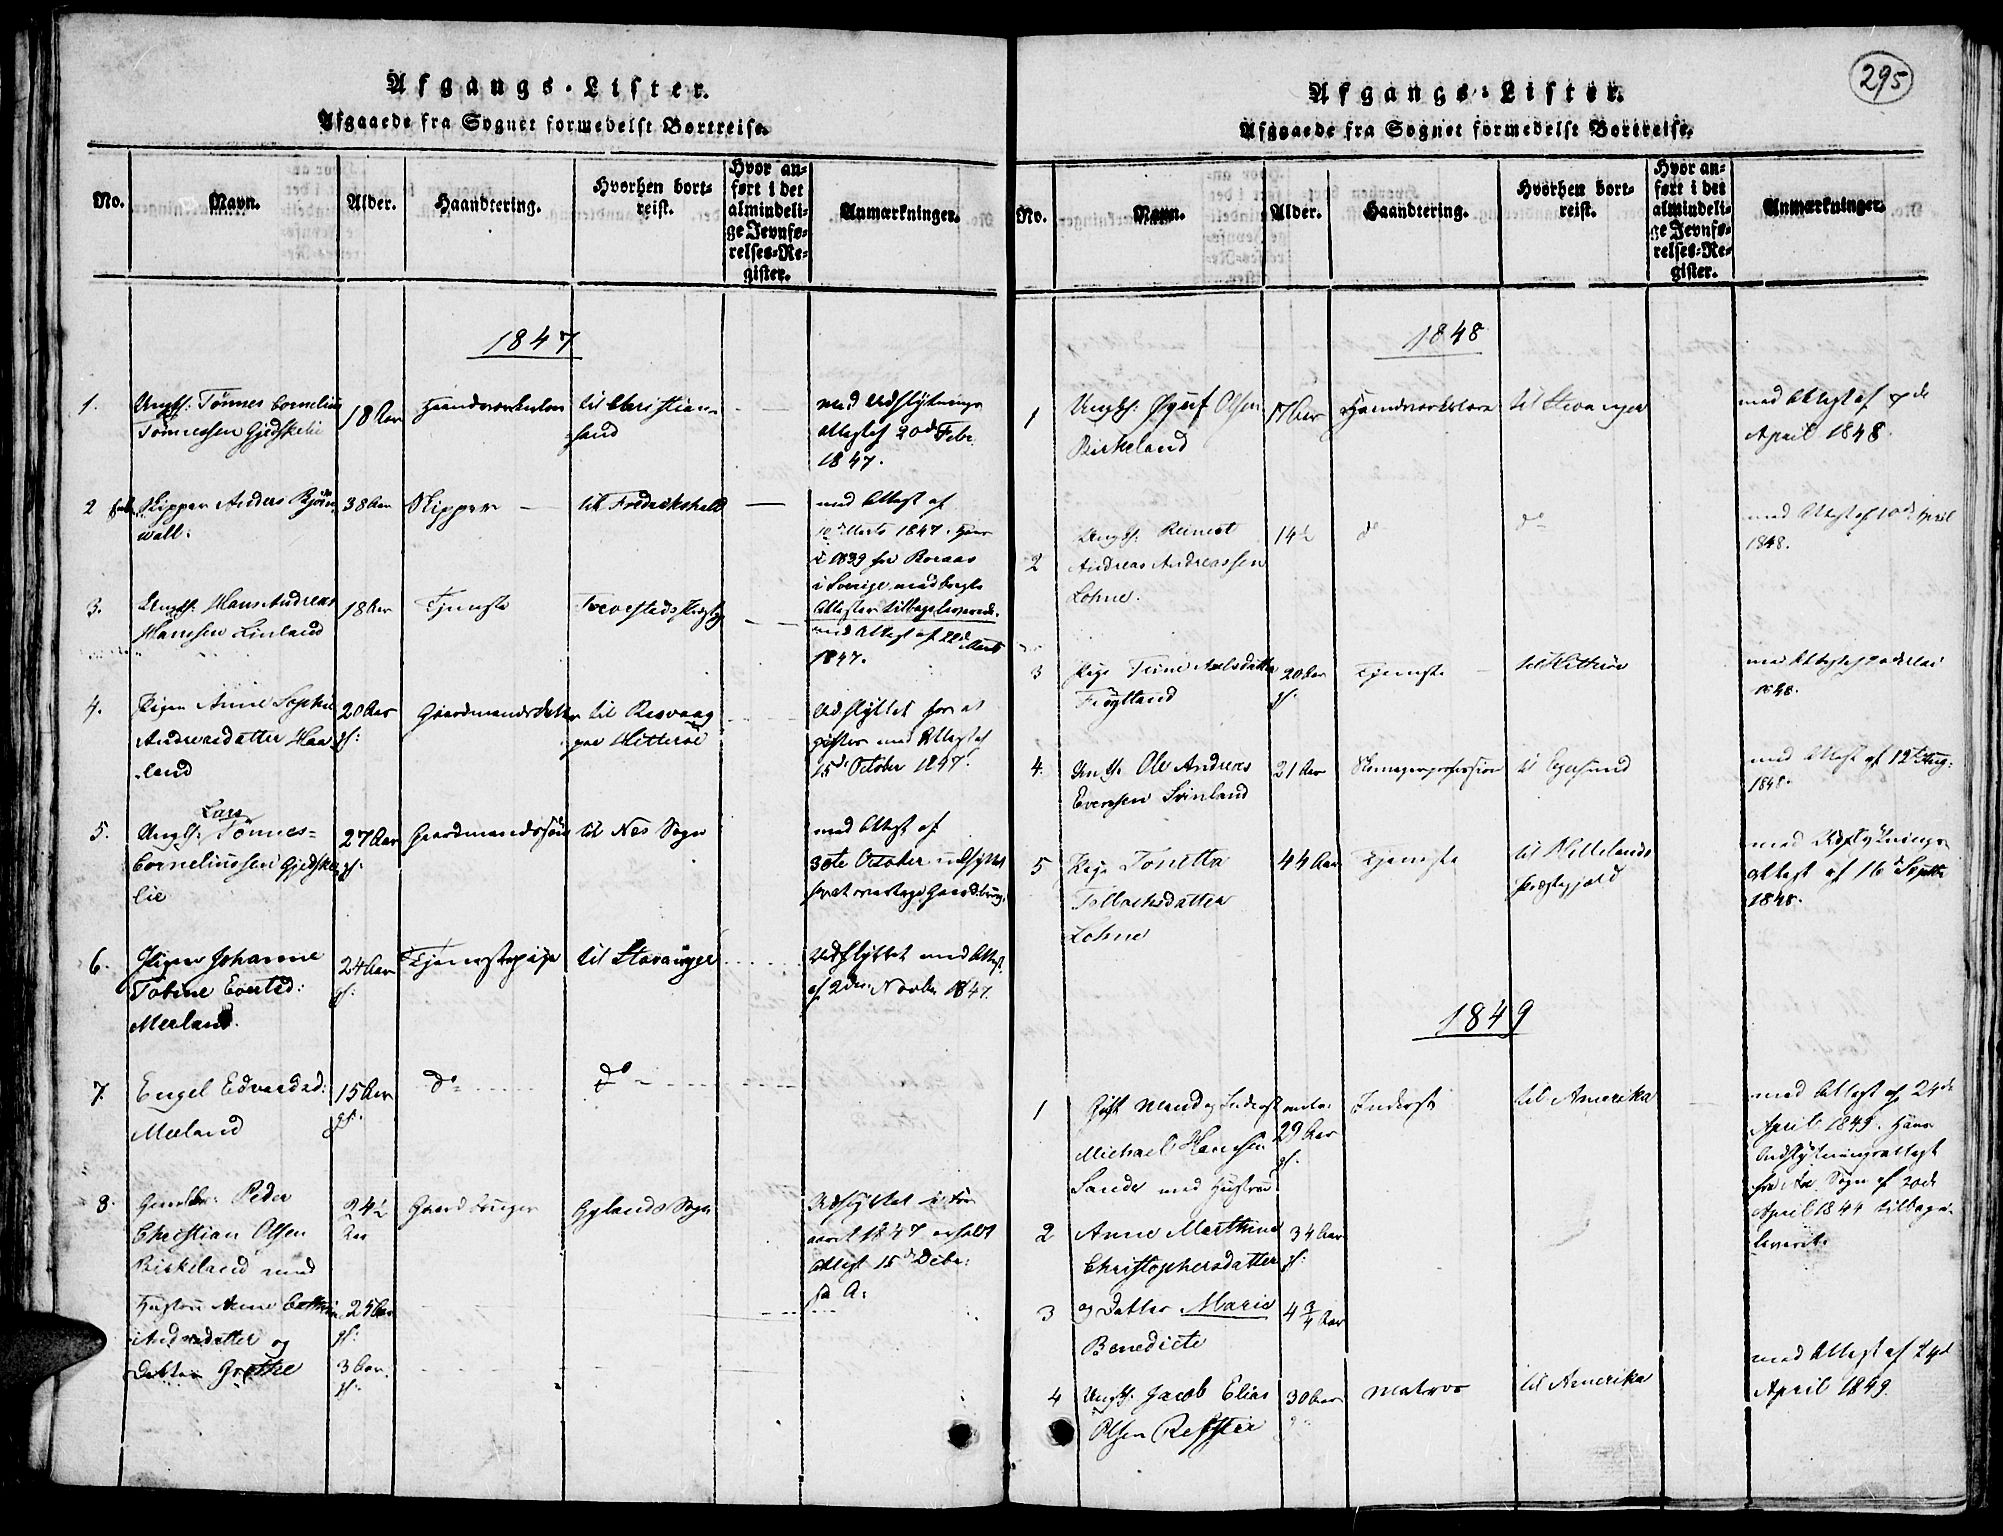 Afgangs-Lister.
Afgaaede fra Sognet formedelst Bortreise.
No.
Navn.
Alder.
Haandtering.
Hvorhen bort-
reist.
Hvor an-
ført i det
almindeli-
ge Jevnfø-
relses-Re-
gister.
Anmærkninger.
1847
1. Ungk: Tønnes Cornelius
Tønnessen Gjedskelie
18 Aar
til Christian-
sand
med Udflytnings
Attest af 20de Febr.
1847.
2 Skipper Anders Bjørn
wall:
38 Aar
Skipper
til Fredrikshald
med Attest af
10de Marts 1847.
i 1839 fra Boraas
i Sverige medbragte
Attester tilbageleverede.
3. Ungk: Hans Andreas
Hanssen Linland
18 Aar
Tjeneste
med Attest af 22de Marts
1847.
4. Pigen Anne Sophie
Andreasdatter Haa
land
20 Aar
gl:
Gaardmandsdatter
til Rasvaag
paa Hitterøe
Udflyttet for at
giftes med Attest af
15de October 1847.
5. Ungk: Lars Tønnes
Corneliussen Gjedske
lie
27 Aar
gl:
Gaardmandssøn
til Nes Sogn
med Attest af
30te October udflyttet
for at overtage Gaardbrug.
6. Pigen Johanne
Tobine Evertsd:
Meeland.
24 Aar
gl:
Tjenestepige
til Stavanger
Udflyttet med Attest
af 2den Novbr 1847.
7. Engel Edvardsd:
Meeland
15 Aar
gl.
do
do
8. Peder
Christian Olsen
Birkeland med
Hustru Anne Cathrine
Andreasdatter og
Datter Grethe
24½
Aar
25 Aar
gl:
3 Aar
gl.
Gaardbruger
Gylands Sogn
Udflyttet i For-
aaret 1847 erholdt
Attest 15de Decbr:
s. A.
295
Afgangs-Lister.
Afgaaede fra Sognet formedelst Bortreise.
No.
Navn.
Alder.
Haandtering.
Hvorhen bort-
reist.
Hvor an-
ført i det
almindeli-
ge Jevnfø-
relses-Re-
gister.
Anmærkninger.
1848
1 Ungk: Olsen
Birkeland
17 Aar
Haandværkslære
til Stavanger
med Attest af
April 1848.
2 Ungk: Reinert
Andreas Andreassen
Lohne.
14½
do
do
med Attest af 10de April
1848.
3 Pige Trine Axelsdatter
Fløytland
20 Aar
gl:
Tjeneste
til Hitterøe
1848.
4. Ungk: Ole Andreas
Evensen Svinland
21 Aar
Skomagerprofession
til Egersund
med Attest af 12te Aug:
1848.
5 Pige Tonetta
Tollachsdatter
Lohne
44 Aar
Tjeneste
Præstegjeld
med Udflytnings-
attest af 16de Septbr
1848.
1849
1 Gift Mand og Inderst
Michael Hansen
Sande med Hustru
29 Aar
gl.
Inderst
til Amerika
med Attest af 24de
April 1849. Hans
Indflytningsattest
Sogn af 20de
April 1844 tilbage-
leveret.
2 Anne Marthine
Christophersdatter
34 Aar
gl:
3 og Datter Marie
Benedicte
4¾ Aar
4 Ungk: Jacob Elias
Olsen
30 Aar
Matros
til Amerika
med Attest af 24de
April 1849